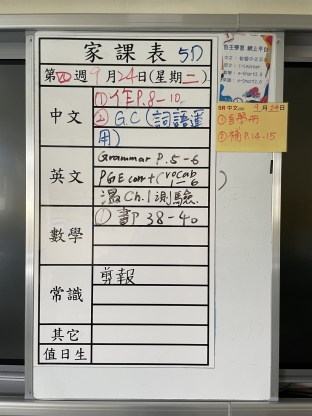 家課表 5D
第四週9月24日(星期二)
中文
①作P.8-10
②G.C(詞語運
用)
英文
Grammar P.5-6
PGE corr + C vocab
1-6
溫Ch.1測驗
數學
①書P38-40
常識
剪報
其它
值日生
自主學習 網上平台
5R 中文 9月24日
①自學冊
②補P.14-15